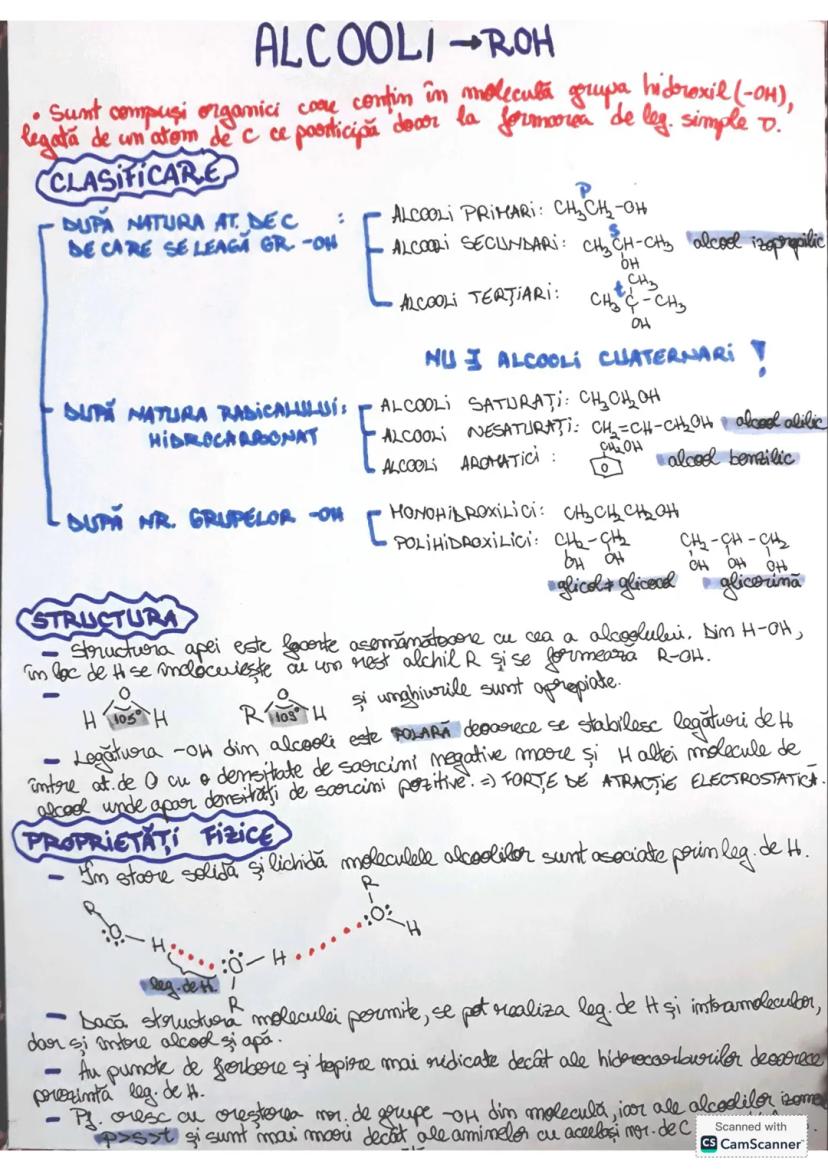 ALCOOLI → ROH
• Sunt compuși organici care conțin în moleculă grupa hidroxil (-OH),
legată de un atom de C ce participă doar la formarea de leg. simple σ.
CLASIFICARE
DUPĂ NATURA AT. DE C :
DE CARE SE LEAGĂ GR. -OH
ALCOOLI PRIMARI: CH₃CH₂-OH
p
ALCOOLI SECUNDARI: CH₃CH-CH₃ alcool izopropilic
s
OH
ALCOOLI TERȚIARI: CH₃-C-CH₃
t
CH₃
OH
NU ∃ ALCOOLI CUATERNARI !
DUPĂ NATURA RADICALULUI:
HIDROCARBONAT
ALCOOLI SATURAȚI: CH₃CH₂OH
ALCOOLI NESATURAȚI: CH₂=CH-CH₂OH alcool alilic
ALCOOLI AROMATICI : CH₂OH alcool benzilic
DUPĂ NR. GRUPELOR -OH
MONOHIDROXILICI: CH₃CH₂CH₂OH
POLIHIDROXILICI: CH₂-CH₂ CH₂-CH-CH₂
OH OH OH OH OH
glicol ≠ glicocol glicerină
STRUCTURA
- Structura apei este foarte asemănătoare cu cea a alcoolului. Din H-OH,
în loc de H se înlocuiește cu un rest alchil R și se formează R-OH.
- O O și unghiurile sunt apropiate.
H 105° H R 109° H
- Legătura -OH din alcooli este POLARĂ deoarece se stabilesc legături de H
între at. de O cu o densitate de sarcini negative mare și H altei molecule de
alcool unde apar densități de sarcini pozitive. => FORȚE DE ATRACȚIE ELECTROSTATICĂ.
PROPRIETĂȚI FIZICE
- În stare solidă și lichidă moleculele alcoolilor sunt asociate prin leg. de H.
R R
O-H O-H
O-H
leg. de H.
R
- Dacă structura moleculei permite, se pot realiza leg. de H și intramolecular,
dar și între alcool și apă.
- Au puncte de fierbere și topire mai ridicate decât ale hidrocarburilor deoarece
prezintă leg. de H.
- Pf. cresc cu creșterea nr. de grupe -OH din moleculă, iar ale alcoolilor izome
p>s>t și sunt mai mari decât ale aminelor cu același nr. de C
Scanned with
CS CamScanner